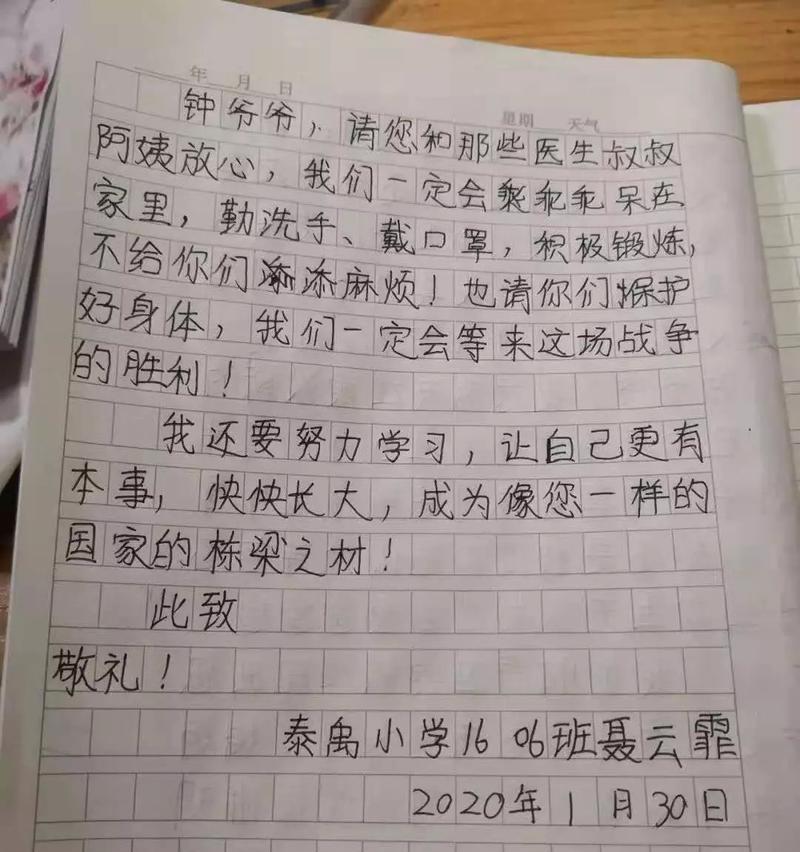 年 月 日
星期 天气
钟爷爷，请您和那些医生叔叔
阿姨放心，我们一定会乖乖呆在
家里，勤洗手、戴口罩，积极锻炼，
不给你们添麻烦！也请你们保护
好身体，我们一定会等来这场战争
的胜利！
我还要努力学习，让自己更有
本事，快快长大，成为像您一样的
国家的栋梁之材！
此致
敬礼！
泰禹小学1606班聂云霏
2020年1月30日